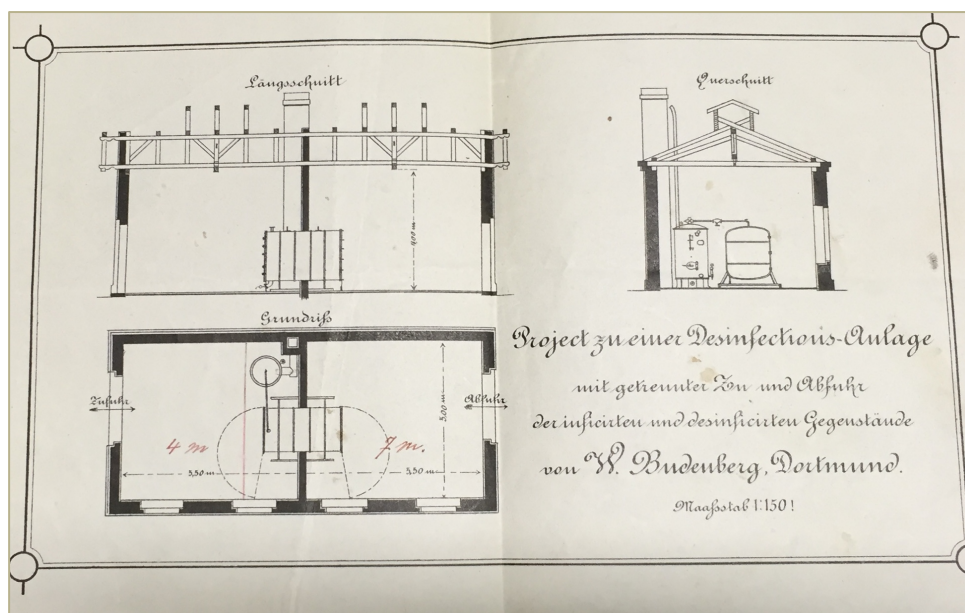 Längsschnitt
Querschnitt
4,00 m
Grundriß
Zufuhr
Abfuhr
4 m
7 m.
5,00 m
5,50 m
5,50 m
Project zu einer Desinfections-Anlage
mit getrennter Zu und Abfuhr
der inficirten und desinficirten Gegenstände
von W. Budenberg, Dortmund.
Maaßstab 1:150!